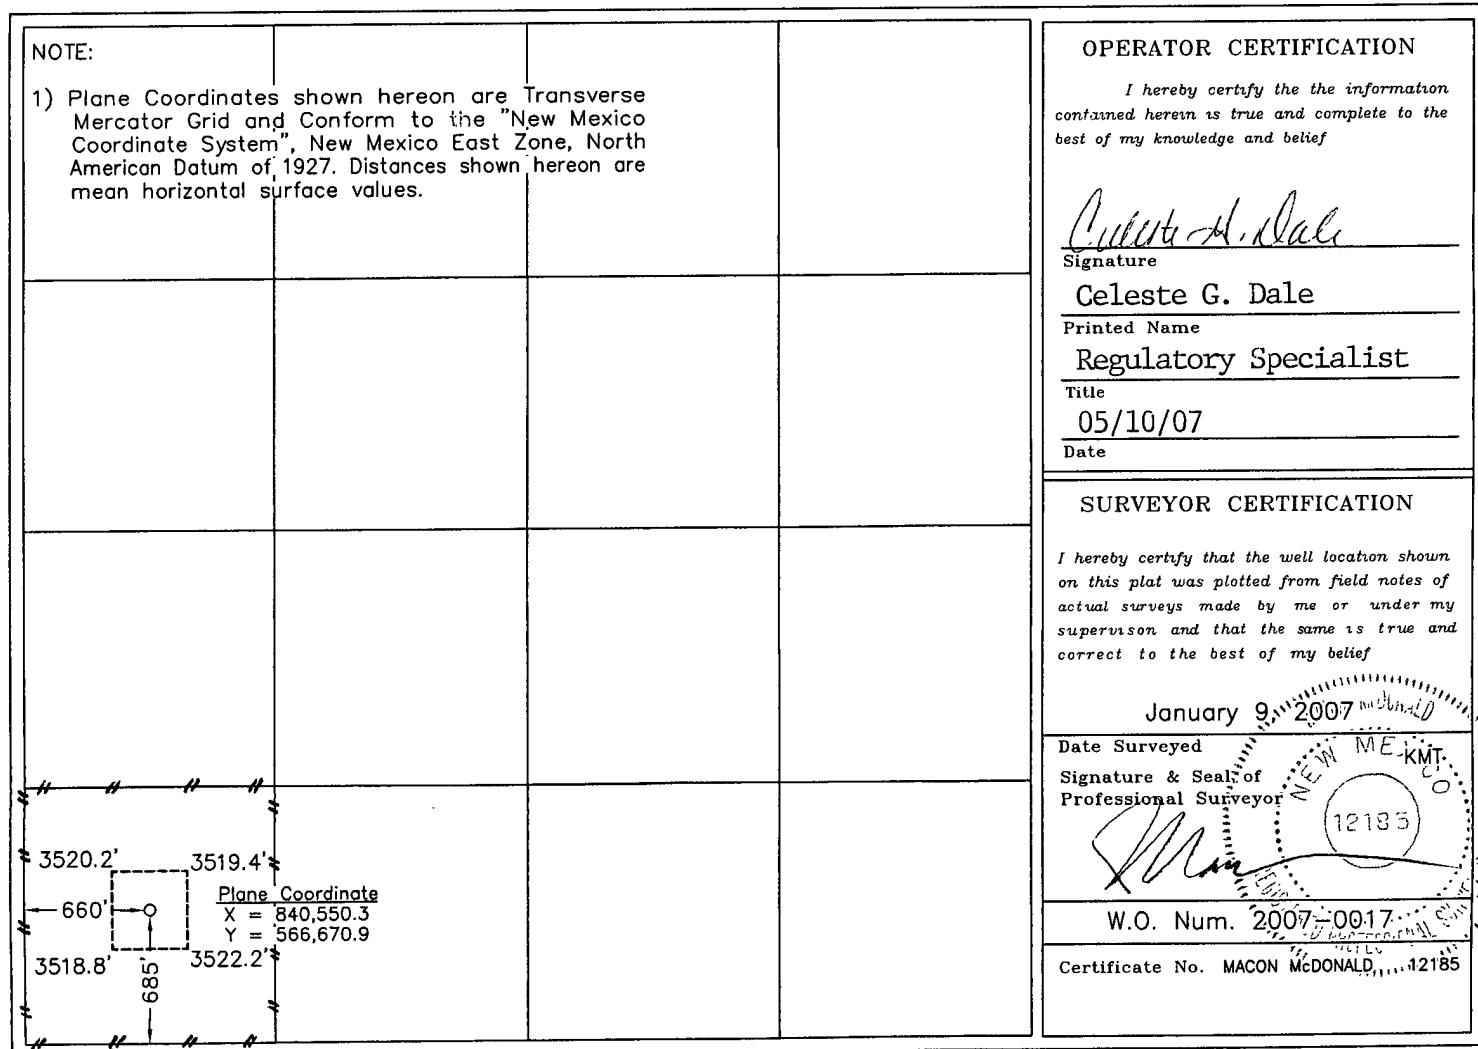 NOTE:
1) Plane Coordinates shown hereon are Transverse
Mercator Grid and Conform to the "New Mexico
Coordinate System", New Mexico East Zone, North
American Datum of 1927. Distances shown hereon are
mean horizontal surface values.
3520.2'
3519.4'
660'
Plane Coordinate
X = 840,550.3
Y = 566,670.9
3518.8'
3522.2'
685'
OPERATOR CERTIFICATION
I hereby certify the the information
contained herein is true and complete to the
best of my knowledge and belief
Signature
Celeste G. Dale
Printed Name
Regulatory Specialist
Title
05/10/07
Date
SURVEYOR CERTIFICATION
I hereby certify that the well location shown
on this plat was plotted from field notes of
actual surveys made by me or under my
supervison and that the same is true and
correct to the best of my belief
January 9, 2007
Date Surveyed
KMT
Signature & Seal of
Professional Surveyor
NEW MEXICO
12185
W.O. Num. 2007-0017
Certificate No. MACON McDONALD 12185